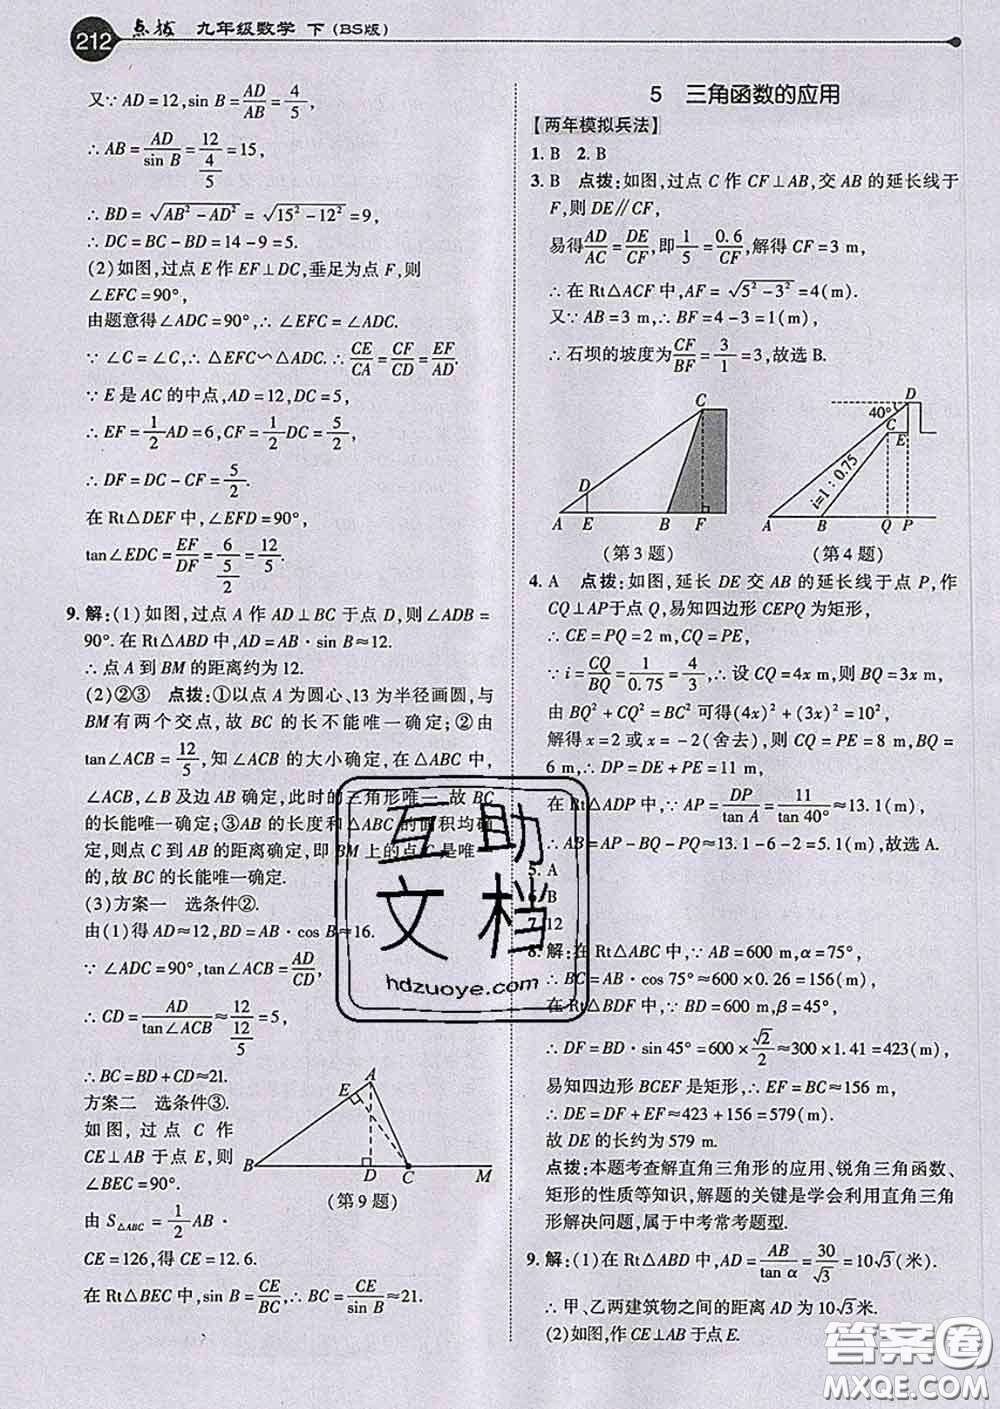 212 点拨 九年级数学 下(BS版)
又∵AD=12,sin B=AD/AB=4/5,
∴AB=AD/sin B=12/(4/5)=15,
∴BD=√(AB²-AD²)=√(15²-12²)=9,
∴DC=BC-BD=14-9=5.
(2)如图,过点E作EF⊥DC,垂足为点F,则
∠EFC=90°,
由题意得∠ADC=90°,∴∠EFC=∠ADC.
∵∠C=∠C,∴△EFC∽△ADC.∴CE/CA=CF/CD=EF/AD.
∵E是AC的中点,AD=12,DC=5,
∴EF=1/2AD=6,CF=1/2DC=5/2.
∴DF=DC-CF=5/2.
在Rt△DEF中,∠EFD=90°,
tan∠EDC=EF/DF=6/(5/2)=12/5.
9.解:(1)如图,过点A作AD⊥BC于点D,则∠ADB=
90°.在Rt△ABD中,AD=AB·sin B≈12.
∴点A到BM的距离约为12.
(2)②③ 点拨:①以点A为圆心、13为半径画圆,与
BM有两个交点,故BC的长不能唯一确定;②由
tan∠ACB=12/5,知∠ACB的大小确定,在△ABC中,
∠ACB,∠B及边AB确定,此时的三角形唯一,故BC
的长能唯一确定;③AB的长度和△ABC的面积均确
定,则点C到AB的距离确定,即BM上的点C是唯一
的,故BC的长能唯一确定.
(3)方案一 选条件②.
由(1)得AD≈12,BD=AB·cos B≈16.
∵∠ADC=90°,tan∠ACB=AD/CD,
∴CD=AD/tan∠ACB≈12/(12/5)=5,
∴BC=BD+CD≈21.
方案二 选条件③.
如图,过点C作
CE⊥AB于点E,则
∠BEC=90°.
由S△ABC=1/2AB·
CE=126,得CE=12.6.
在Rt△BEC中,sin B=CE/BC,∴BC=CE/sin B≈21.
A
E
B D C M
(第9题)
5 三角函数的应用
【两年模拟兵法】
1.B 2.B
3.B 点拨:如图,过点C作CF⊥AB,交AB的延长线于
F,则DE∥CF,
易得AD/AC=DE/CF,即1/5=0.6/CF,解得CF=3 m,
∴在Rt△ACF中,AF=√(5²-3²)=4(m).
又∵AB=3 m,∴BF=4-3=1(m),
∴石坝的坡度为CF/BF=3/1=3,故选B.
C
D
A E B F
(第3题)
D
40°
C
E
i=1:0.75
A B Q P
(第4题)
4.A 点拨:如图,延长DE交AB的延长线于点P,作
CQ⊥AP于点Q,易知四边形CEPQ为矩形,
∴CE=PQ=2 m,CQ=PE,
∵i=CQ/BQ=1/0.75=4/3,∴设CQ=4x m,则BQ=3x m,
由BQ²+CQ²=BC²可得(4x)²+(3x)²=10²,
解得x=2或x=-2(舍去),则CQ=PE=8 m,BQ=
6 m,∴DP=DE+PE=11 m,
在Rt△ADP中,∵AP=DP/tan A=11/tan 40°≈13.1(m),
∴AB=AP-BQ-PQ≈13.1-6-2=5.1(m),故选A.
5.A
6.B
7.12
8.解:在Rt△ABC中,∵AB=600 m,α=75°,
∴BC=AB·cos 75°≈600×0.26=156(m),
在Rt△BDF中,∵BD=600 m,β=45°,
∴DF=BD·sin 45°=600×√2/2≈300×1.41=423(m),
易知四边形BCEF是矩形,∴EF=BC≈156 m,
∴DE=DF+EF≈423+156=579(m).
故DE的长约为579 m.
点拨:本题考查解直角三角形的应用、锐角三角函数、
矩形的性质等知识,解题的关键是学会利用直角三角
形解决问题,属于中考常考题型.
9.解:(1)在Rt△ABD中,AD=AB/tan α=30/√3=10√3(米).
∴甲、乙两建筑物之间的距离AD为10√3米.
(2)如图,作CE⊥AB于点E.
互助
文档
hdzuoye.com
答案圈
MXQE.COM